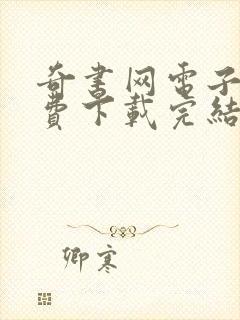 奇書网電子
費下載完結
卿寒